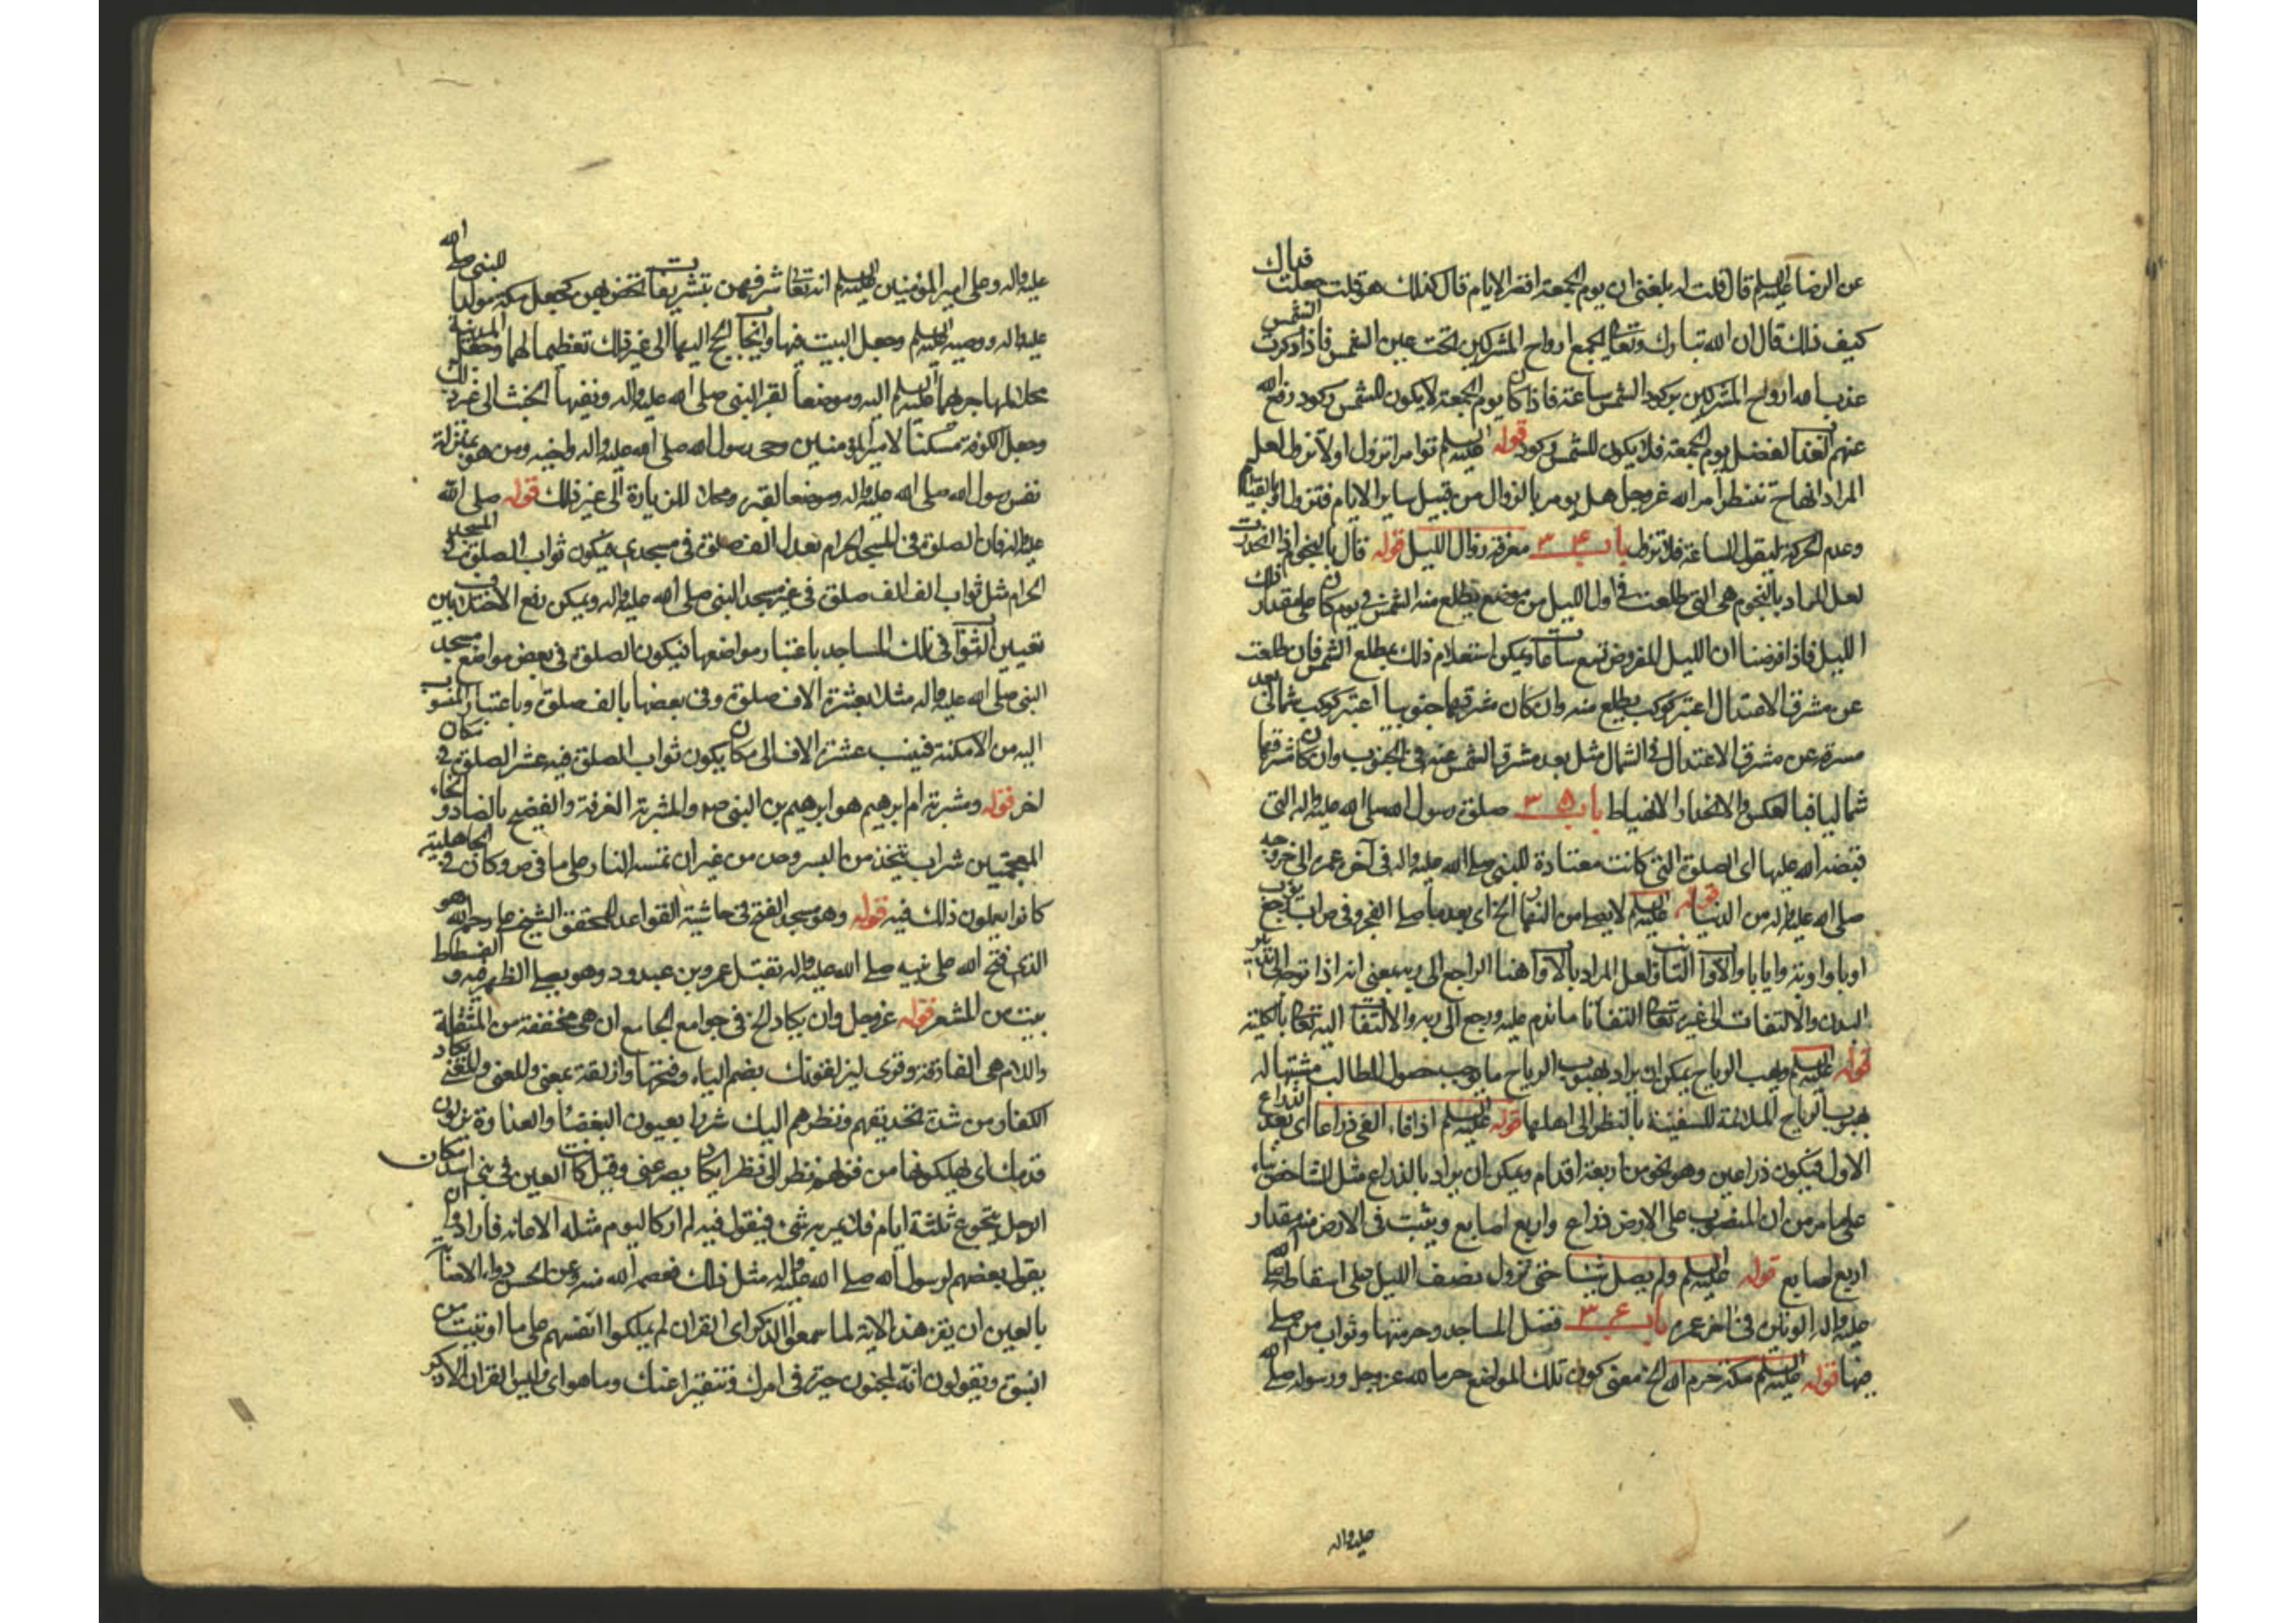 عن الرضا عليه السلم قال قلت له بلغنى ان يوم الجمعة اقصر الايام قال كذلك هو قلت جعلت فداك
كيف ذلك قال ان الله تبارك وتعالى يجمع ارواح المشركين تحت عين الشمس فاذا ركدت الشمس
عذب الله ارواح المشركين بركود الشمس ساعة فاذا كان يوم الجمعة لا يكون للشمس ركود رفع الله
عنهم العذاب لفضل يوم الجمعة فلا يكون للشمس ركود قوله عليه السلم تؤامر اتزول او لا تزول لعل
المراد انها ح تنتظر امر الله عز وجل هل يومر بالزوال من قبيل ساير الايام فتزول او بالقيام
وعدم الحركة ليقول الساعة فلا تزول باب ٣٤ معرفة زوال الليل قوله قال بالنجوم اذا انحدرت
لعل المراد بالنجوم هى التى طلعت فى اول الليل من موضع يطلع منه الشمس فى يوم كان على مقدار ذلك
الليل فاذا فرضنا ان الليل المفروض تسع ساعات ويمكن استعلام ذلك بمطلع الشمس فان طلعت
عن مشرق الاعتدال اعتبر كوكب يطلع منه وان كان مشرقها جنوبيا اعتبر كوكب شمالى بعد
مسره عن مشرق الاعتدال فى الشمال مثل بعد مشرق الشمس عنه فى الجنوب وان كان مشرقها
شماليا فبالعكس والانحدار الانهباط باب ٣٥ صلوة رسول الله صلى الله عليه واله التى
قبضه الله عليها اى الصلوة التى كانت معتادة للنبى صلى الله عليه واله فى آخر عمره الى خروجه
صلى الله عليه واله من الدنيا قوله عليه السلم لا يصلى من النهار الخ اى بعد ما صلى الفجر وفى ص اب رجع يؤب
اوبا واوبة وايابا والاواب التائب ولعل المراد بالاواب هنا الراجع الى ربه بمعنى انه اذا توجه الى تدبير
البدن والالتفات الى غيره تعالى التفاتا ما ندم عليه ورجع الى ربه والالتفات اليه تعالى بالكلية
قوله عليه السلم وهب الرياح يمكن ان يراد بهبوب الرياح ما يوجب حصول المطالب مشبها له
بهبوب الرياح الملائمة للسفينة بالنظر الى اهلها قوله عليه السلم اذا فاء الفىء ذراعا اى بعد الذراع
الاول فيكون ذراعين وهو نحو من اربعة اقدام ويمكن ان يراد بالذراع مثل الشاخص بناء
على ما مر من ان المنصوب على الارض ذراع واربع اصابع ويثبت فى الارض منه مقدار
اربع اصابع قوله عليه السلم ولم يصل شيئا حتى تزول نصف الليل على اسقاطه صلى الله
عليه واله الوتين فى اخر عمره باب ٣٦ فضل المساجد وحرمتها وثواب من صلى
فيها قوله عليه السلم مكة حرم الله الخ معنى كون تلك المواضع حرما لله عز وجل ورسوله صلى الله
عليه واله
عليه واله وعلى امير المؤمنين عليه السلم انه تعالى شرفهن بتشريفات تختص بهن كجعل مكة مولدا للنبى صلى الله
عليه واله ووصيه عليه السلم وجعل البيت فيها وايجاب الحج اليها الى غير ذلك تعظيما لها وجعل المدينة
محلا لمهاجرهما عليه السلم اليه وموضعا لقبر النبى صلى الله عليه واله ونفيها الخبث الى غير ذلك
وجعل الكوفة مسكنا لامير المؤمنين وصى رسول الله صلى الله عليه واله واخيه ومن هو بمنزلة
نفس رسول الله صلى الله عليه واله وموضعا لقبره ومحلا للزيارة الى غير ذلك قوله صلى الله
عليه واله فان الصلوة فى المسجد الحرام تعدل الف صلوة فى مسجدى فيكون ثواب الصلوة فى المسجد
الحرام مثل ثواب الف الف صلوة فى غير مسجد النبى صلى الله عليه واله ويمكن رفع الاختلاف بين
تعيين الثواب فى تلك المساجد باعتبار مواضعها فيكون الصلوة فى بعض مواضع مسجد
النبى صلى الله عليه واله مثلا بعشرة الاف صلوة وفى بعضها بالف صلوة وباعتبار المنسوب
اليه من الامكنة فينسب عشرة الاف الى مكان يكون ثواب الصلوة فيه عشر الصلوة فى مكان
اخر قوله ومشربة ام ابرهيم هو ابرهيم بن النبى ص والمشربة الغرفة والفضيخ بالضاد والخاء
المعجمتين شراب يتخذ من البسر وحده من غير ان تمسه النار على ما فى ص وكان فى الجاهلية
كانوا يعملون ذلك فيه قوله وهو مسجد الفتح فى حاشية القواعد للمحقق الشيخ على رحمه الله هو
الذى فتح الله على نبيه صلى الله عليه واله بقتل عمرو بن عبد ود وهو يصلى الظهر فيه والفسطاط
بيت من الشعر قوله عز وجل وان يكاد الخ فى جوامع الجامع ان هى مخففة من المثقلة
واللام هى الفارقة وقرى ليزلقونك بضم الياء وفتحها وازلقه بمعنى والمعنى يكاد
الكفار من شدة تحديقهم ونظرهم اليك شزرا بعيون البغضاء والعداوة يزلون
قدمك اى يهلكونها من قولهم نظر الى نظرا يكاد يصرعنى وقيل كانت العين فى بنى اسد فكان
الرجل يتجوع ثلثة ايام فلا يمر به شىء فيقول فيه لم ار كاليوم مثله الا عانه فارادوا ان
يقول بعضهم لرسول الله صلى الله عليه واله مثل ذلك فعصمه الله منه وعن الحسن دواء الاصابة
بالعين ان يقرء هذه الاية لما سمعوا الذكر اى القران لم يملكوا انفسهم على ما اوتيت من
النبوة ويقولون انه لمجنون حيرة فى امرك وتنفيرا عنك وما هو اى وليس القران الا ذكر